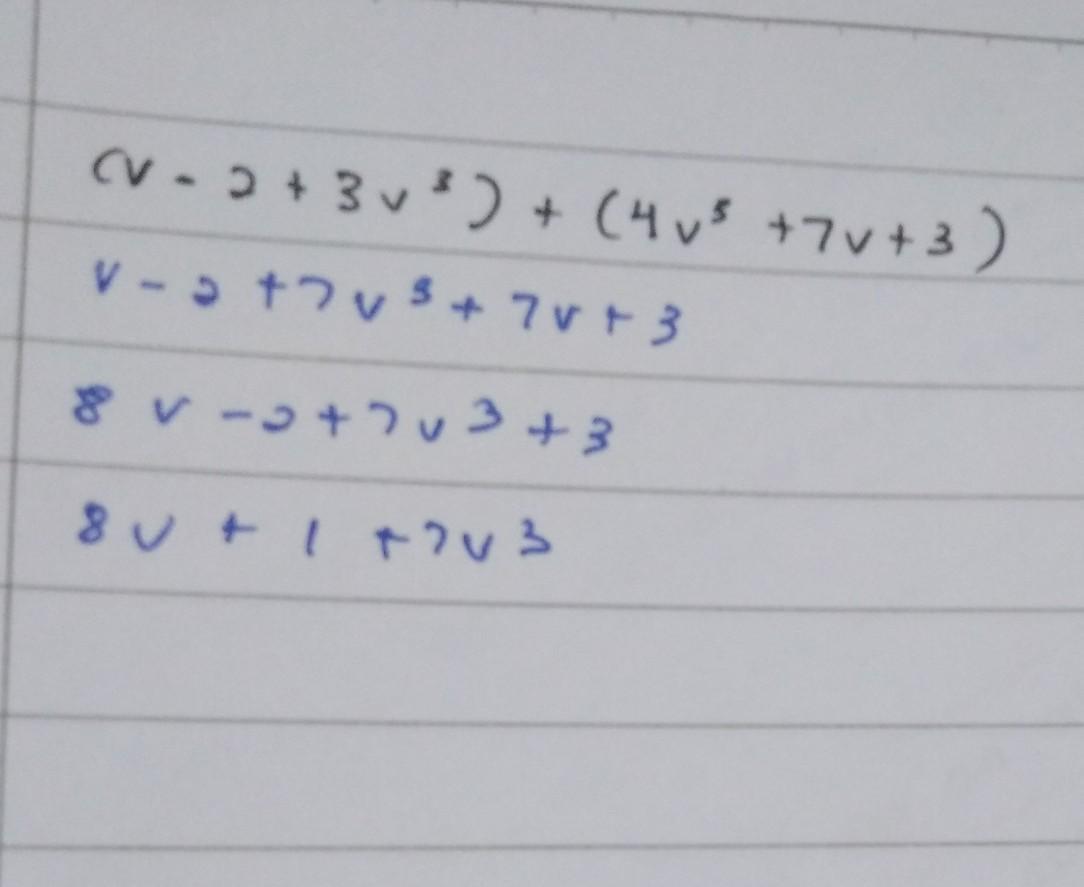 (v - 2 + 3v³) + (4v³ +7v+3)
v - 2 +7v³ + 7v + 3
8 v - 2 + 7v³ + 3
8v + 1 + 7v3